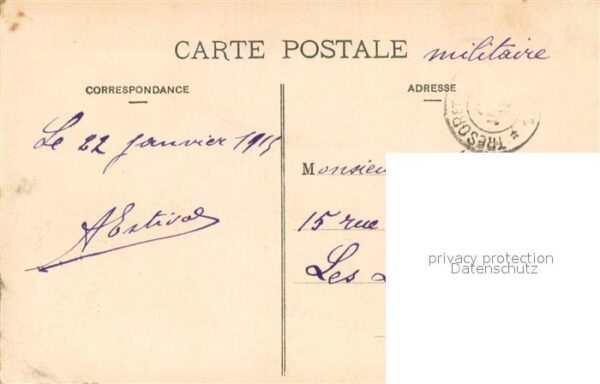 CARTE POSTALE militaire
CORRESPONDANCE
ADRESSE
TRESOR
Le 22 janvier 1915
Monsieu
AEstival
15 rue
Les
privacy protection
Datenschutz